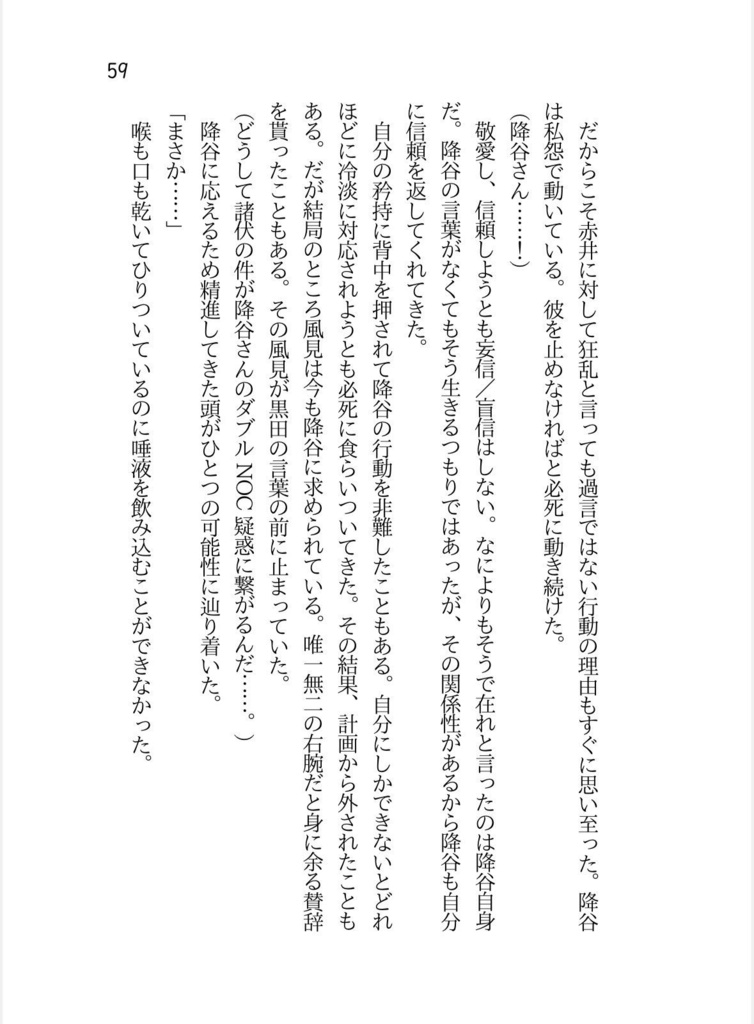 59
だからこそ赤井に対して狂乱と言っても過言ではない行動の理由もすぐに思い至った。降谷
は私怨で動いている。彼を止めなければと必死に動き続けた。
(降谷さん……！)
敬愛し、信頼しようとも妄信／盲信はしない。なによりもそうで在れと言ったのは降谷自身
だ。降谷の言葉がなくてもそう生きるつもりではあったが、その関係性があるから降谷も自分
に信頼を返してくれてきた。
自分の矜持に背中を押されて降谷の行動を非難したこともある。自分にしかできないとどれ
ほどに冷淡に対応されようとも必死に食らいついてきた。その結果、計画から外されたことも
ある。だが結局のところ風見は今も降谷に求められている。唯一無二の右腕だと身に余る賛辞
を貰ったこともある。その風見が黒田の言葉の前に止まっていた。
(どうして諸伏の件が降谷さんのダブルNOC疑惑に繋がるんだ……。)
降谷に応えるため精進してきた頭がひとつの可能性に辿り着いた。
「まさか……」
喉も口も乾いてひりついているのに唾液を飲み込むことができなかった。